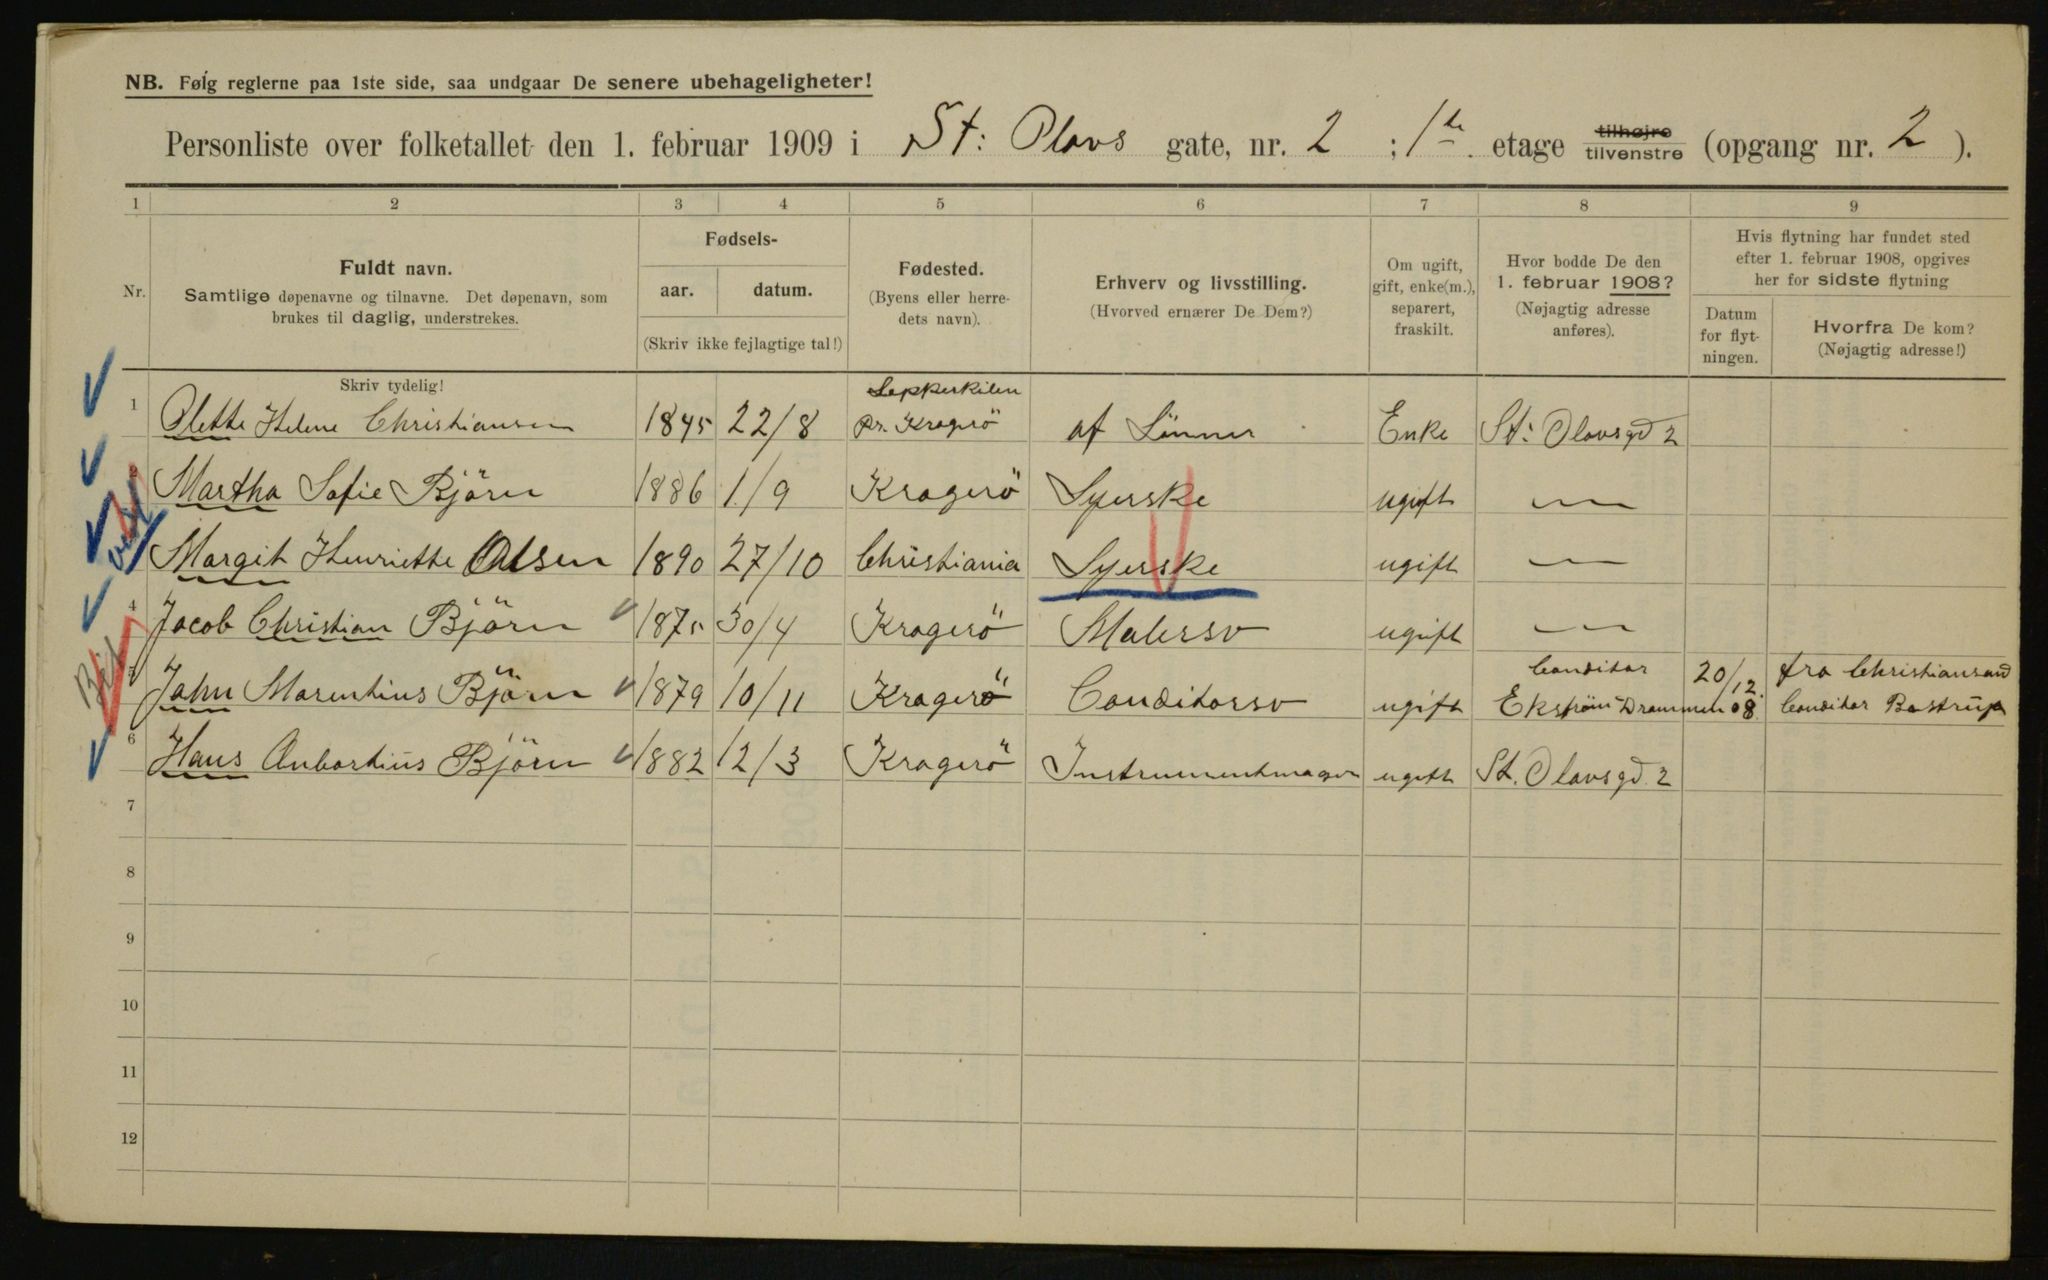 NB. Følg reglerne paa 1ste side, saa undgaar De senere ubehageligheter!
Personliste over folketallet den 1. februar 1909 i St: Olavs gate, nr. 2 ; 1ste etage tilhøjre tilvenstre (opgang nr. 2 ).
1 2 3 4 5 6 7 8 9
Nr.
Fuldt navn.
Samtlige døpenavne og tilnavne. Det døpenavn, som
brukes til daglig, understrekes.
Fødsels-
aar. datum.
(Skriv ikke fejlagtige tal!)
Fødested.
(Byens eller herre-
dets navn).
Erhverv og livsstilling.
(Hvorved ernærer De Dem?)
Om ugift,
gift, enke(m.),
separert,
fraskilt.
Hvor bodde De den
1. februar 1908?
(Nøjagtig adresse
anføres).
Hvis flytning har fundet sted
efter 1. februar 1908, opgives
her for sidste flytning
Datum
for flyt-
ningen.
Hvorfra De kom?
(Nøjagtig adresse!)
Skriv tydelig!
1 Olette Helene Christiansen 1845 22/8 pr. Kragerö af Sönner Enke St: Olavsgd 2
2 Martha Sofie Björn 1886 1/9 Kragerö Syerske ugift —
Margit Henriette Olsen 1890 27/10 Christiania Syerske ugift —
4 Jacob Christian Björn 1875 30/4 Kragerö Malersv ugift —
5 John Marentius Björn 1879 10/11 Kragerö Conditorsv ugift Conditor Ekström Drammen 20/12.08 fra Christiansand Conditor Bastrup
6 Hans Anbortius Björn 1882 12/3 Kragerö Instrumentmager ugift St. Olavsgd. 2
7
8
9
10
11
12